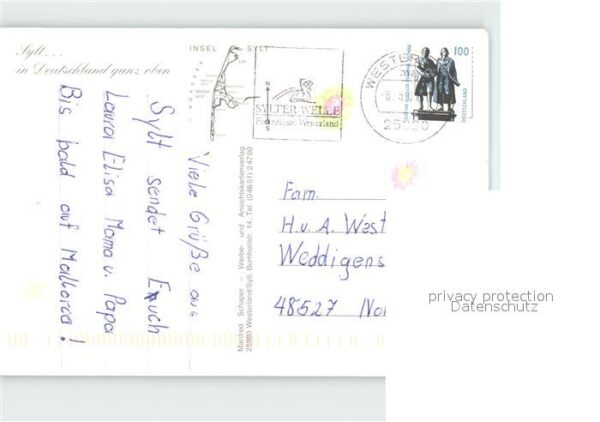 Sylt...
in Deutschland ganz oben
INSEL SYLT
SYLTER WELLE
Westerland
WESTER
100
DEUTSCHLAND
Viele Grüße aus
Sylt sendet Euch
Laura Elisa Mama u. Papa
Bis bald auf Mallorca!
Manfred Schaper - Werbe- und Ansichtskartenverlag
25980 Westerland/Sylt, Bomhoffstr. 14, Tel. (04651) 24700
Fam.
H.u.A. West
Weddigens
48527 Nor
privacy protection
Datenschutz